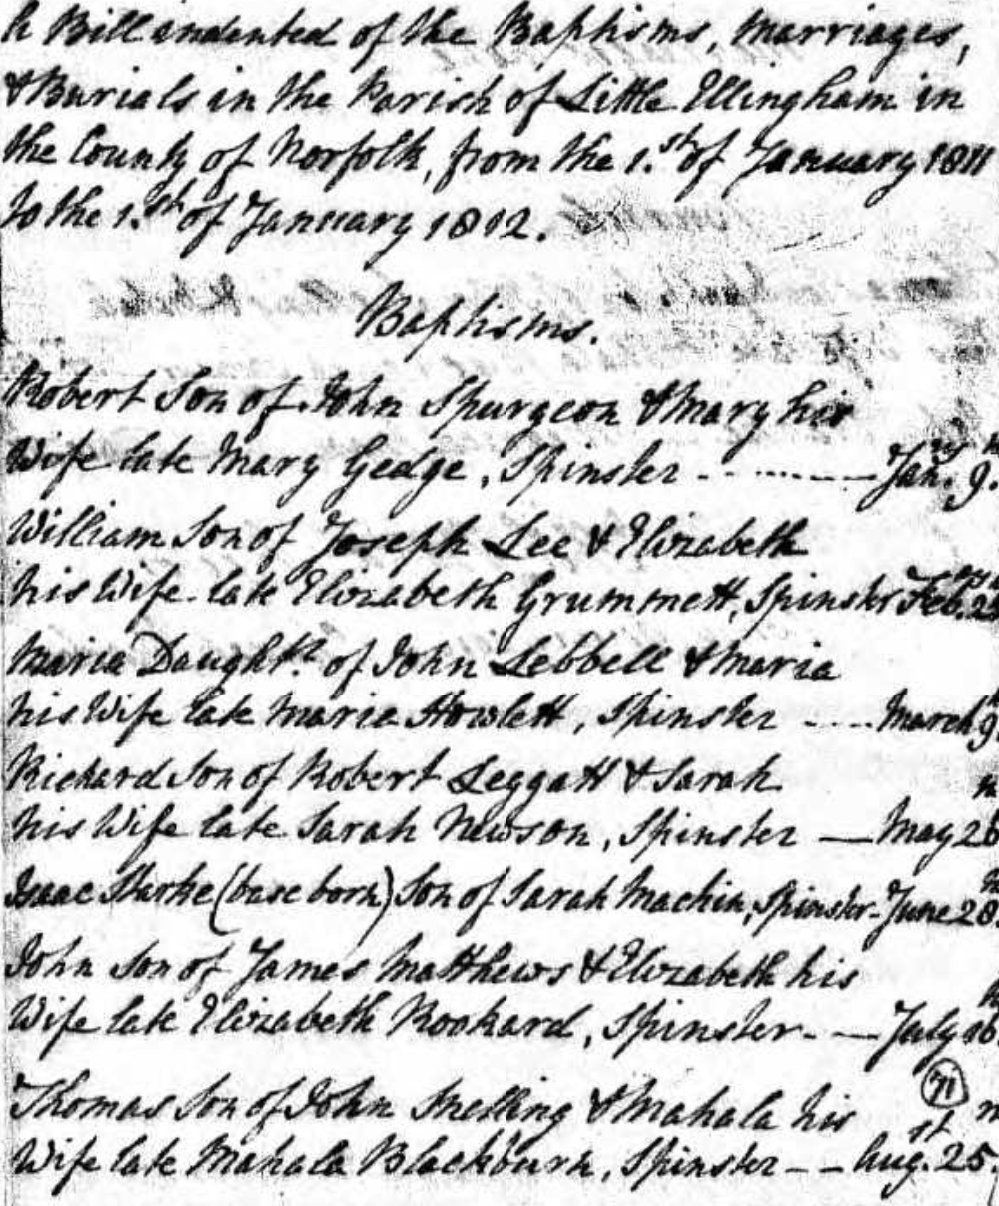 A Bill indented of the Baptisms, Marriages,
& Burials in the Parish of Little Ellingham in
the County of Norfolk, from the 1.st of January 1811
to the 1.st of January 1812.
Baptisms.
Robert Son of John Spurgeon & Mary his
Wife late Mary Gedge, Spinster - - - - - - - Jan.ry 9.th
William Son of Joseph Lee & Elizabeth
his Wife late Elizabeth Grummett, Spinster Feb.ry
Maria Daught.r of John Lebbell & Maria
his Wife late Maria Howlett, Spinster - - - - March 9.
Richard Son of Robert Leggatt & Sarah
his Wife late Sarah Newson, Spinster — May
Isaac Starke (base born) Son of Sarah Machin, Spinster - June 28.th
John Son of James Matthews & Elizabeth his
Wife late Elizabeth Rookard, Spinster - — July 16.th
71
Thomas Son of John Snelling & Mahala his
Wife late Mahala Blackburn, Spinster - - Aug.st 25.